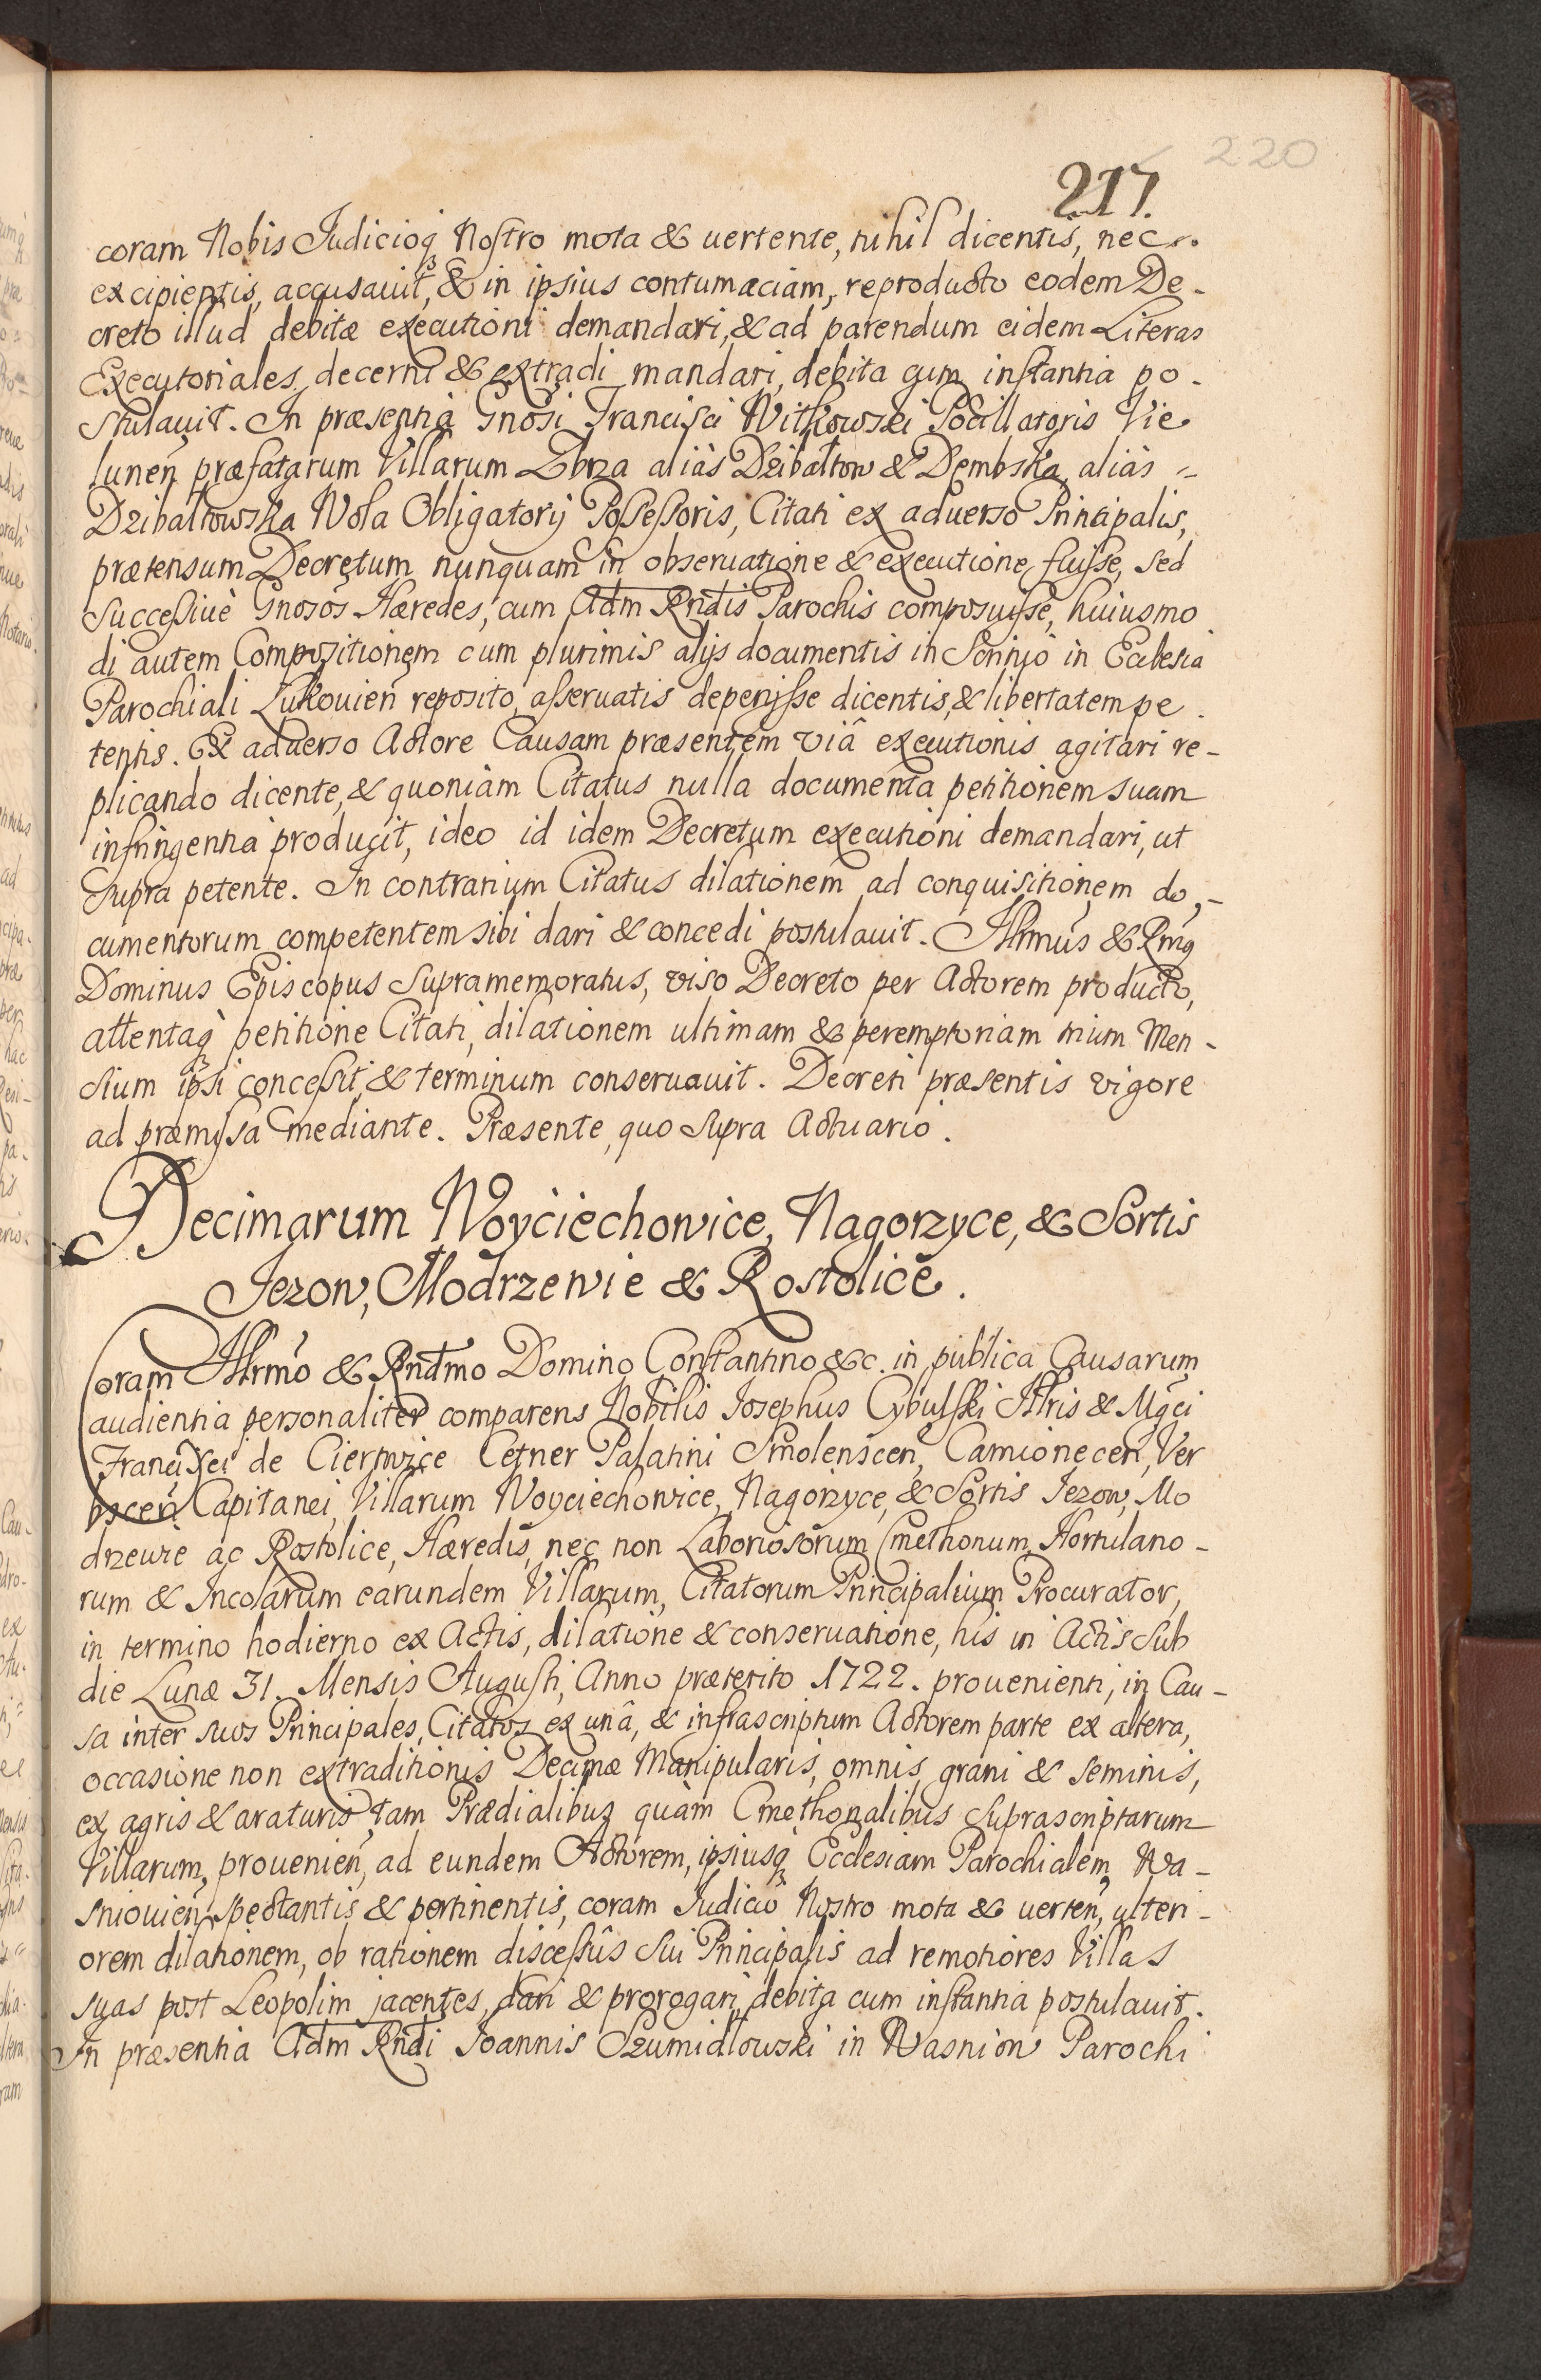 220
217.
coram Nobis Judicioq₃ Nostro mota & uertente, nihil dicentis, nec
excipientis, accusauit, & in ipsius contumaciam, reproducto eodem De-
creto illud debitæ executioni demandari, & ad parendum eidem Literas
Executoriales decerni & extradi mandari, debita cum instantia po-
stulauit. In præsentia Gnosi Francisci Witkowski Pocillatoris Vie
lunen̄ præfatarum Villarum Zbrza aliàs Dzibałtow & Dembska, aliàs =
Dzibałtowska Wola Obligatorij Possessoris, Citati ex aduerso Principalis,
prætensum Decretum nunquam in obseruatione & executione fuisse, sed
Successiuè Gnosos Hæredes, cum Adm Rndis Parochis composuisse, huiusmo
di autem Compositionem cum plurimis alijs documentis in Scrinio in Ecclesia
Parochiali Łukouien̄ reposito, asseruatis deperijsse dicentis, & libertatem pe
tentis. Ex aduerso Actore Causam præsentem viâ executionis agitari re-
plicando dicente, & quoniàm Citatus nulla documenta petitionem suam
infringentia producit, ideo id idem Decretum executioni demandari, ut
Supra petente. In contrarium Citatus dilationem ad conquisitionem do,-
cumentorum competentem sibi dari & concedi postulauit. Illrmus & Rmg
Dominus Episcopus Supramemoratus, viso Decreto per Actorem producto,
attentaq₃ petitione Citati, dilationem ultimam & peremptoriam trium Men-
sium ipsi concessit, & terminum conseruauit. Decreti præsentis vigore
ad præmissa mediante. Præsente, quo Supra Actuario.
Decimarum Woyciechowice, Nagorzyce, & Sortis
Jezow, Modrzewie & Rostolice.
Coram Illrmo & Rndmo Domino Constantino &c. in publica Causarum
audientia personaliter comparens Nobilis Josephus Cybulski Illris & Mgci
Francisci de Cierwice Cetner Palatini Smolenscen̄, Camionecen̄, Ver
bscen̄ Capitanei, Villarum Woyciechowice, Nagorzyce, & Sortis Jezow, Mo
drzewie ac Rostolice, Hæredis, nec non Laboriosorum Cmethonum, Hortulano-
rum & Incolarum earundem Villarum, Citatorum Principalium Procurator,
in termino hodierno ex Actis, dilatione & conseruatione, his in Actis Sub
die Lunæ 31. Mensis Augusti, Anno præterito 1722. prouenienti, in Cau-
sa inter suos Principales, Citatos ex unâ, & infrascriptum Actorem parte ex altera,
occasione non extraditionis Decimæ Manipularis, omnis grani & seminis,
ex agris & araturis tam Prædialibus quàm Cmethonalibus Suprascriptarum
Villarum, prouenien̄, ad eundem Actorem, ipsiusq₃ Ecclesiam Parochialem Wa-
sniouien̄ spectantis & pertinentis, coram Judicio Nostro mota & uerten̄, ulteri-
orem dilationem, ob rationem discessûs Sui Principalis ad remotiores Villas
suas post Leopolim jacentes, dari & prorogari, debita cum instantia postulauit.
In præsentia Adm Rndi Joannis Szumidłowski in Wasniow Parochi